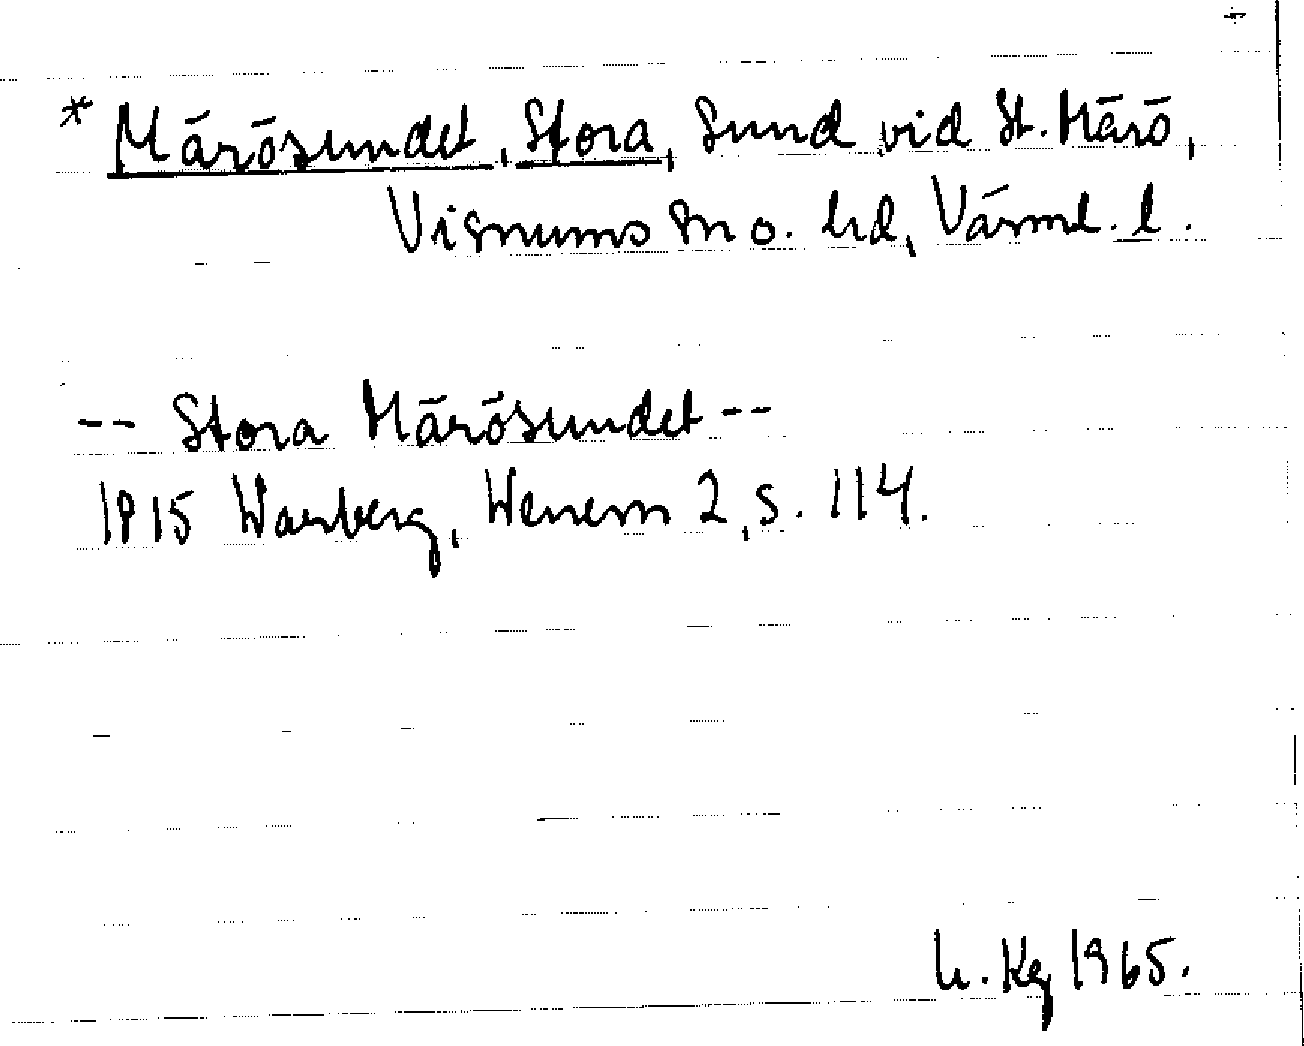 * Märösundet, Stora, sund vid St. Märö,
Visnums sn o. hd, Värml. l.
-- Stora Märösundet --
1915 Warberg, Wenern 2, s. 114.
h. Kg 1965.